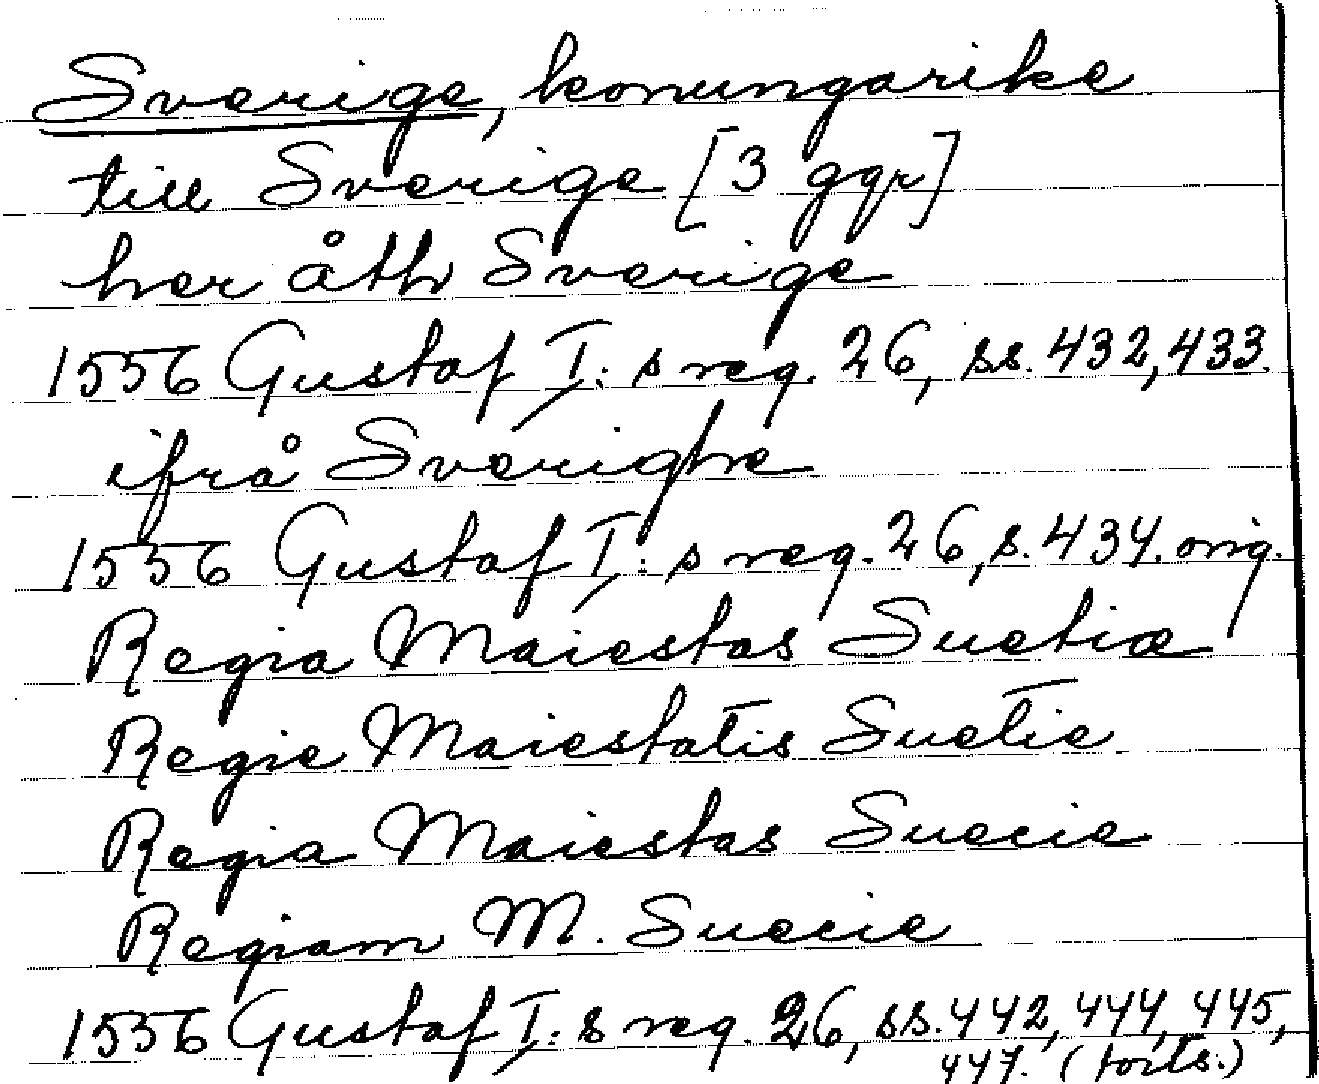 Sverige, konungarike
till Sverige [3 ggr]
her åth Sverige
1556 Gustaf I:s reg. 26, ss. 432, 433.
ifrå Swerighe
1556 Gustaf I:s reg. 26, s. 434. orig.
Regia Maiestas Suetiæ
Regie Maiestatis Suetie
Regia Maiestas Suecie
Regiam M. Suecie
1556 Gustaf I:s reg. 26, ss. 442, 444, 445,
447. (forts.)